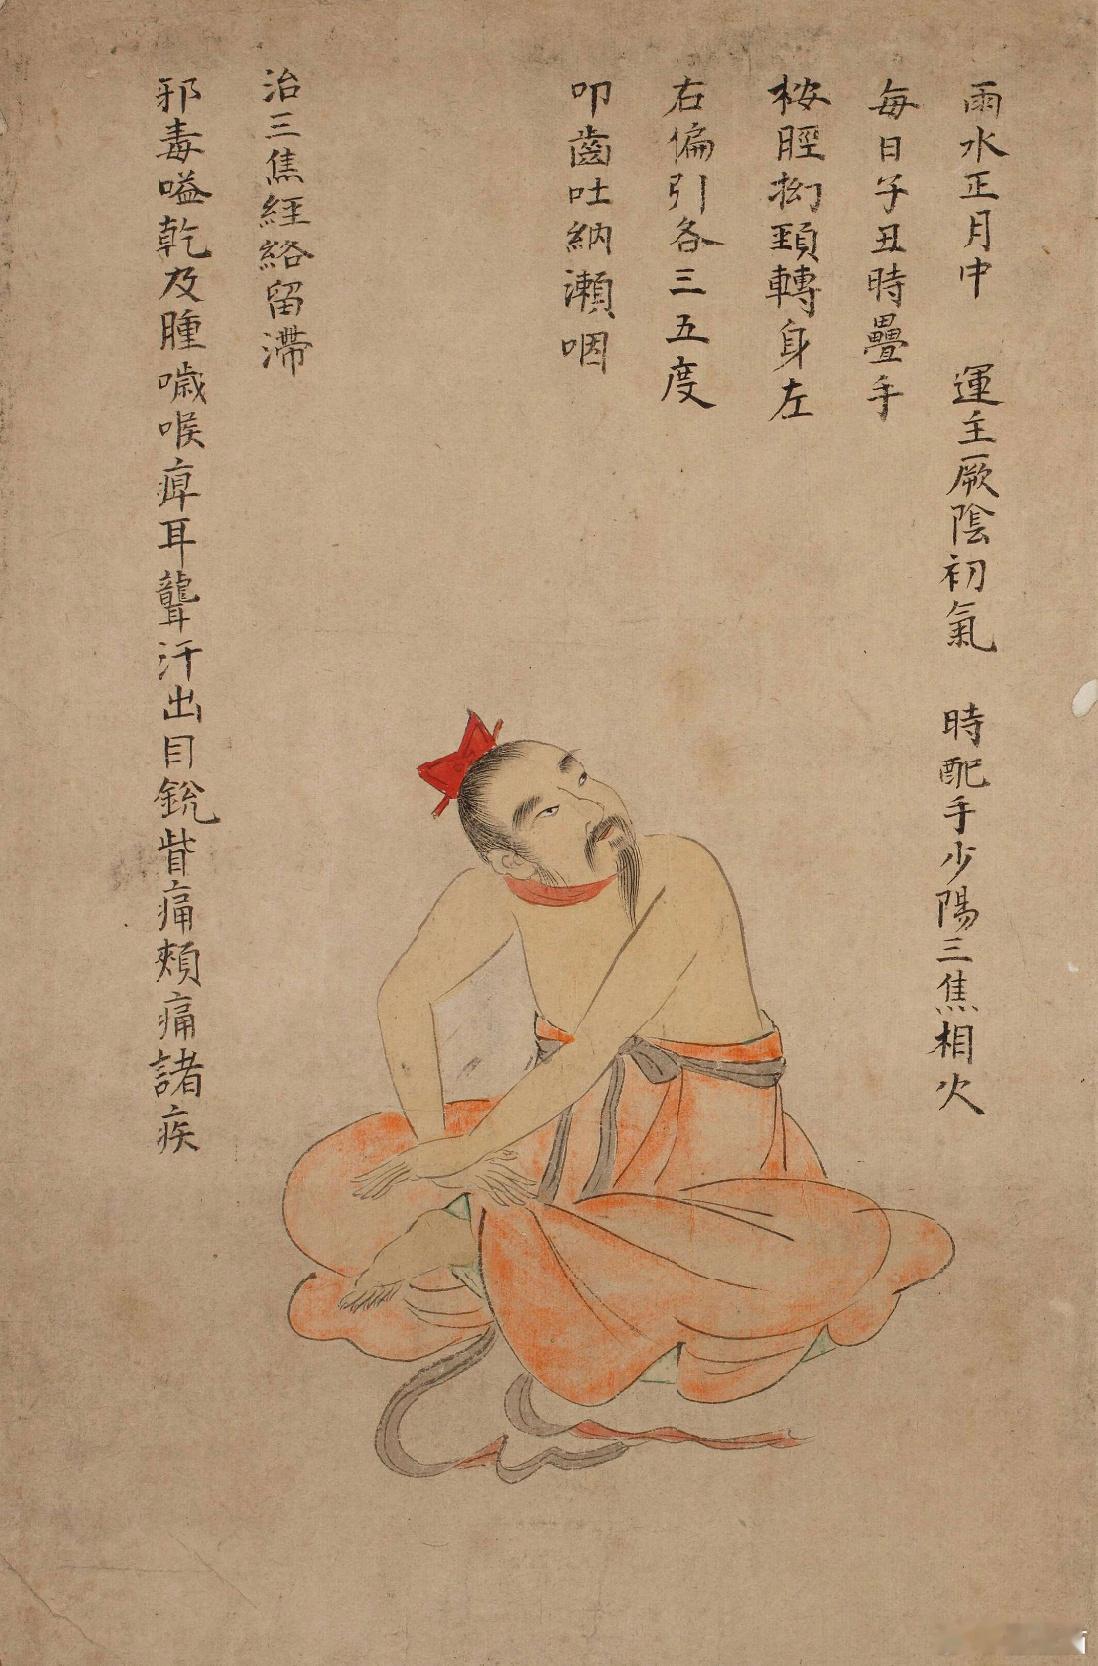 雨水正月中　運主厥陰初氣　時配手少陽三焦相火
每日子丑時疊手
按脛拗頸轉身左
右偏引各三五度
叩齒吐納瀬咽
治三焦經絡留滯
邪毒嗌乾及腫噦喉痺耳聾汗出目銳眥痛頰痛諸疾